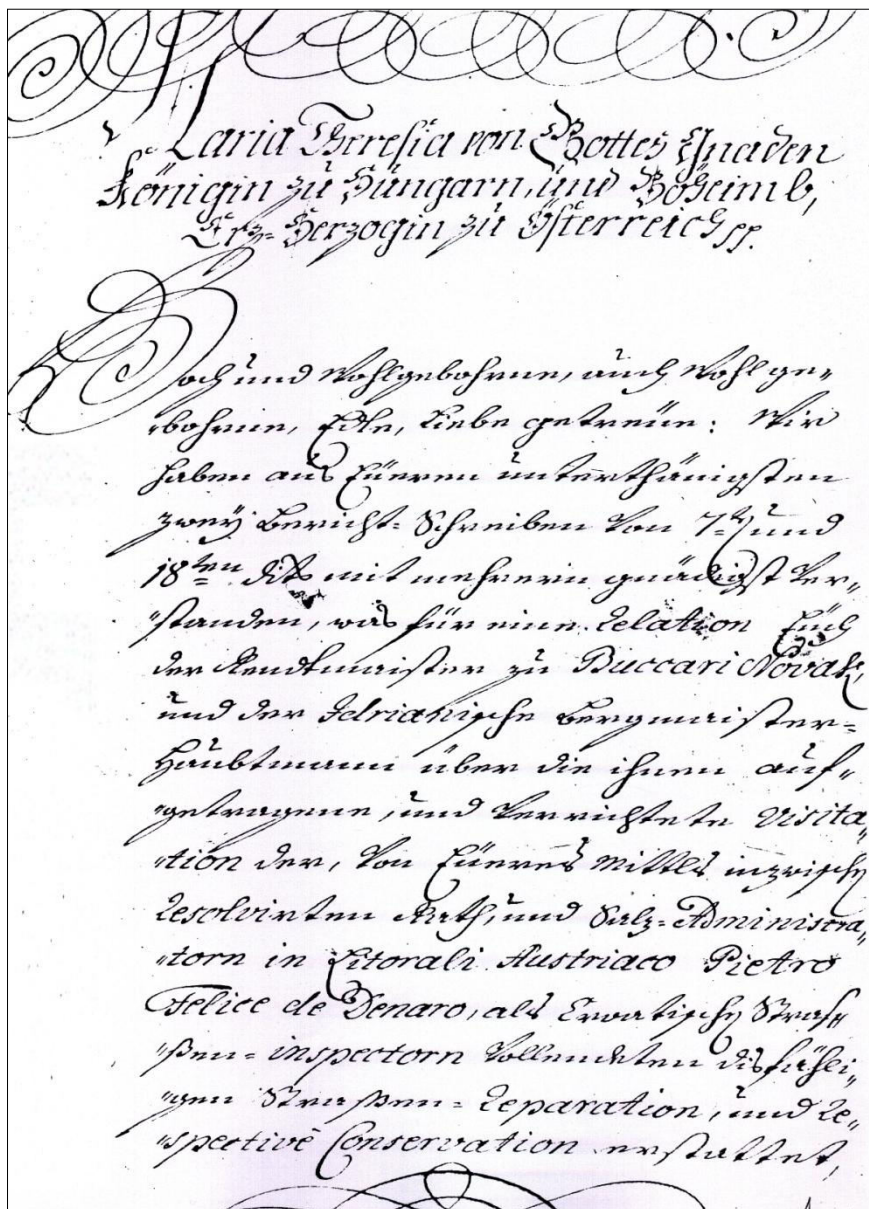 Maria Theresia von Gottes Gnaden
Königin zu Hungarn, und Böheimb,
Erz-Herzogin zu Österreich pp.
Hoch und Wohlgebohrne, auch Wohlge-
bohrne, Edle, Liebe getreüe: Wir
haben aus Eüeren unterthänigsten
zweÿ Bericht-Schreiben von 7ten und
18ten dits mit mehrern gnädigst ver-
standen, was für eine Relation Eüch
der Rendtmaister zu Buccari Novak,
und der Idrianische Bergmaister-
Haubtmann über die ihnen auf-
getragene, und verrichtete Visita-
tion der, von Eüeres Mittls inzwischen
Resolvirten Rath, und Salz-Administra-
torn in Litorali Austriaco Pietro
Felice de Denaro, als Croatischen Stras-
ßen-inspectorn vollendeten disfähli-
gen Straßen-Reparation, und Re-
spective Conservation erstattet,